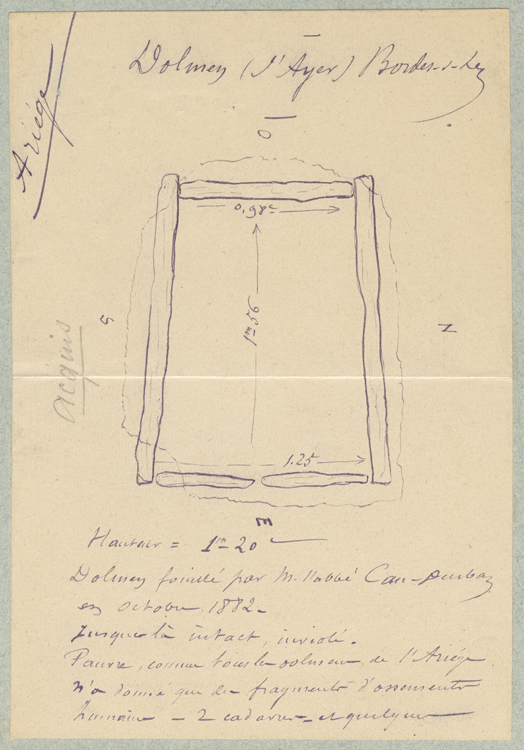 Dolmen (d'Ayer) Bordes-s-Lez
Ariége
O
0,98c
S
1m56
N
acquis
1.25
E
Hauteur = 1m 20
Dolmen fouillé par M. l'abbé Cau-Durban
en octobre 1882.
Jusque là intact, inviolé.
Pauvre, comme tous les dolmens de l'Ariége
n'a donné que des fragments d'ossements
humains – 2 cadavres – et quelques